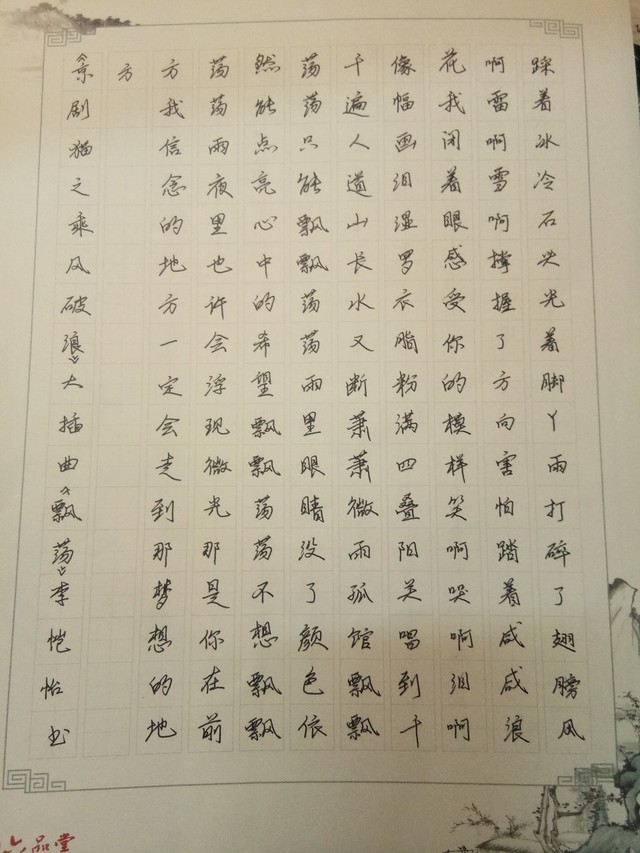 踩着冰冷石头光着脚丫雨打碎了翅膀风
啊雷啊雪啊撑握了方向害怕踏着咸咸浪
花我闭着眼感受你的模样笑啊哭啊泪啊
像幅画泪湿罗衣脂粉满四叠阳关唱到千
千遍人道山长水又断萧萧微雨孤馆飘飘
荡荡只能飘飘荡荡雨里眼睛没了颜色依
然能点亮心中的希望飘飘荡荡不想飘飘
荡荡雨夜里也许会浮现微光那是你在前
方我信念的地方一定会走到那梦想的地
方
《京剧猫之乘风破浪》大插曲《飘荡》李恺怡书
品堂